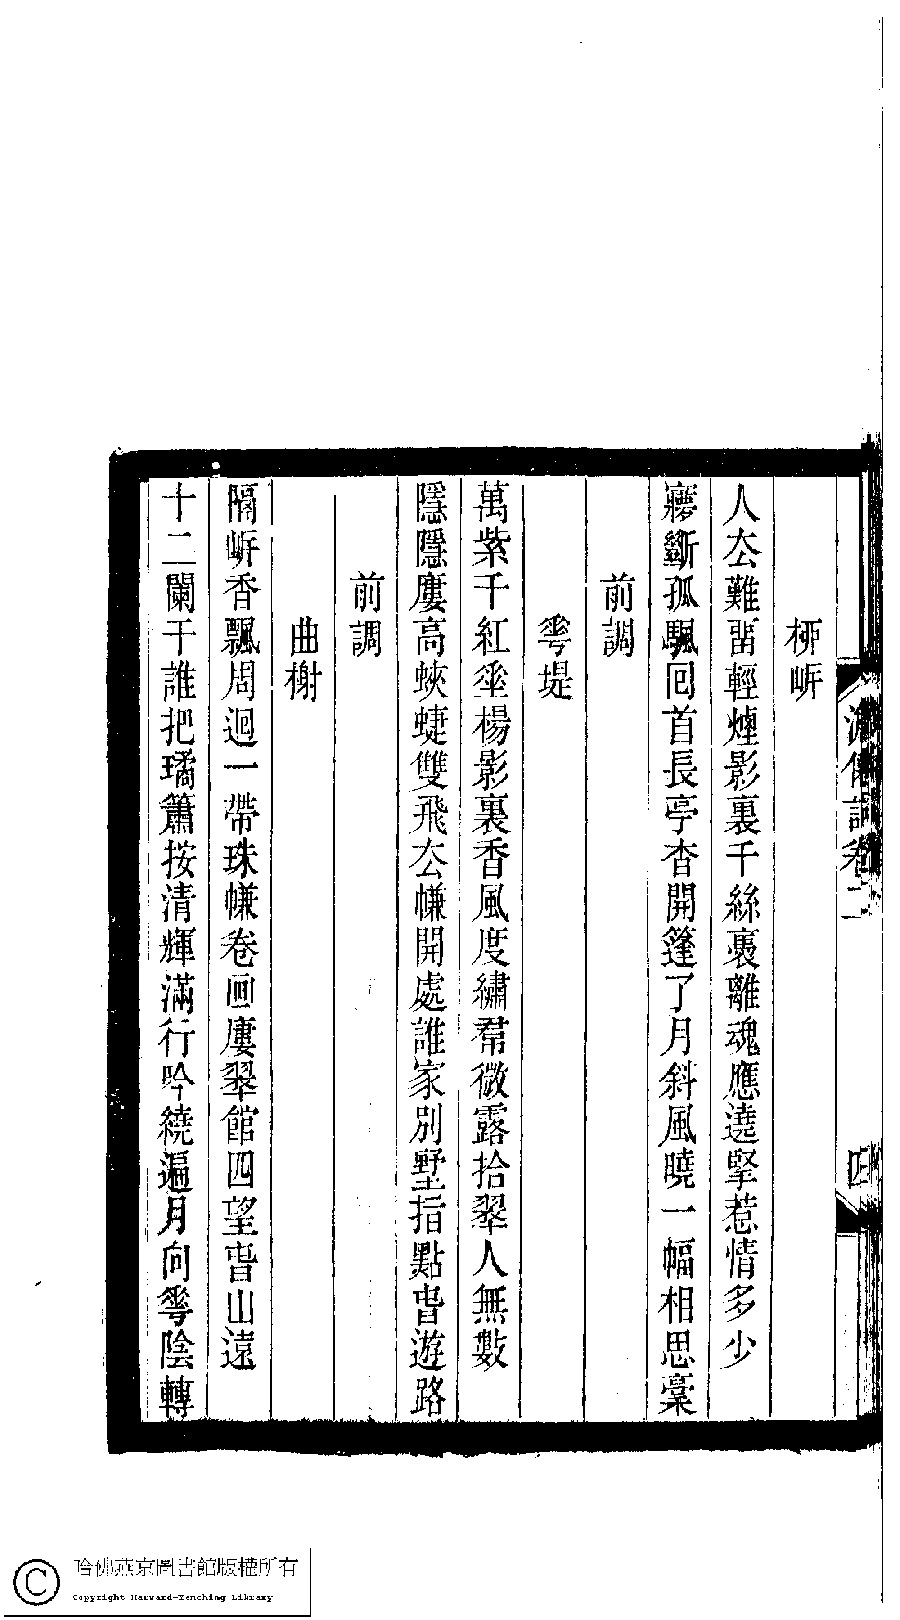 桺岍
人厺難畱輕煙影裏千絲裊離魂應遶牽惹情多少
夢斷孤颿回首長亭杳開篷了月斜風曉一幅相思稾
前調
𠌶堤
萬紫千紅𠂹楊影裏香風度繡帬微露拾翠人無數
隱隱廔高蛺蜨雙飛厺㡘開處誰家別墅指點旾遊路
前調
曲榭
隔岍香飄周迴一帶珠㡘卷画廔翠館四望旾山遠
十二闌干誰把璚簫按清輝滿行吟繞遍月向𠌶陰轉
詞卷二
四
哈佛燕京圖書館版權所有
Copyright Harvard-Yenching Library